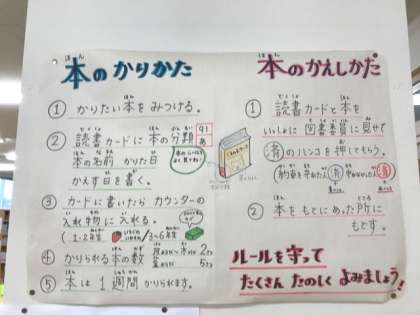 本のかりかた
① かりたい本をみつける。
② 読書カードに本の分類 91 あ
本の名前 かりた日
かえす日を書く。
③ カードに書いたら カウンターの
入れ物に入れる。
(1・2年生 / 3~6年生
④ かりられる本の数
⑤ 本は1週間かりられます。
本のかえしかた
① 読書カードと本を
いっしょに図書委員に見せて
済のハンコを押してもらう。
② 本をもとにあった所に
もどす。
ルールを守って
たくさん たのしく よみましょう!